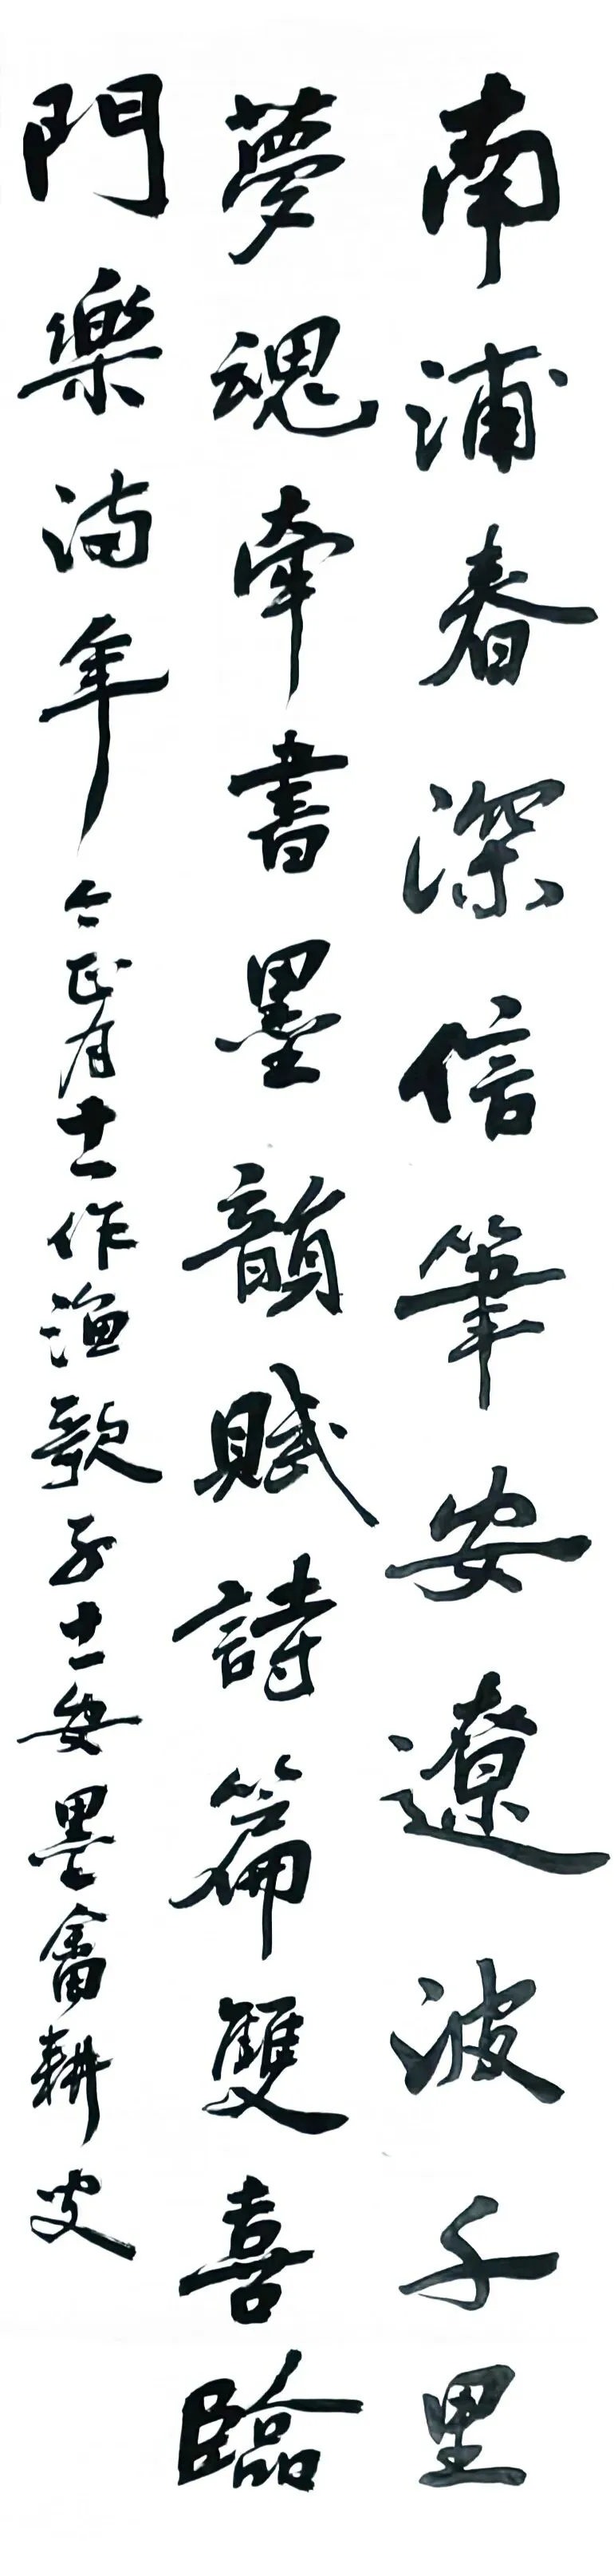 南浦春深信筆安遼波千里
夢魂牽書墨韻賦詩篇雙喜臨
門樂满年 正有士作漁歌子士安墨畬耕叟